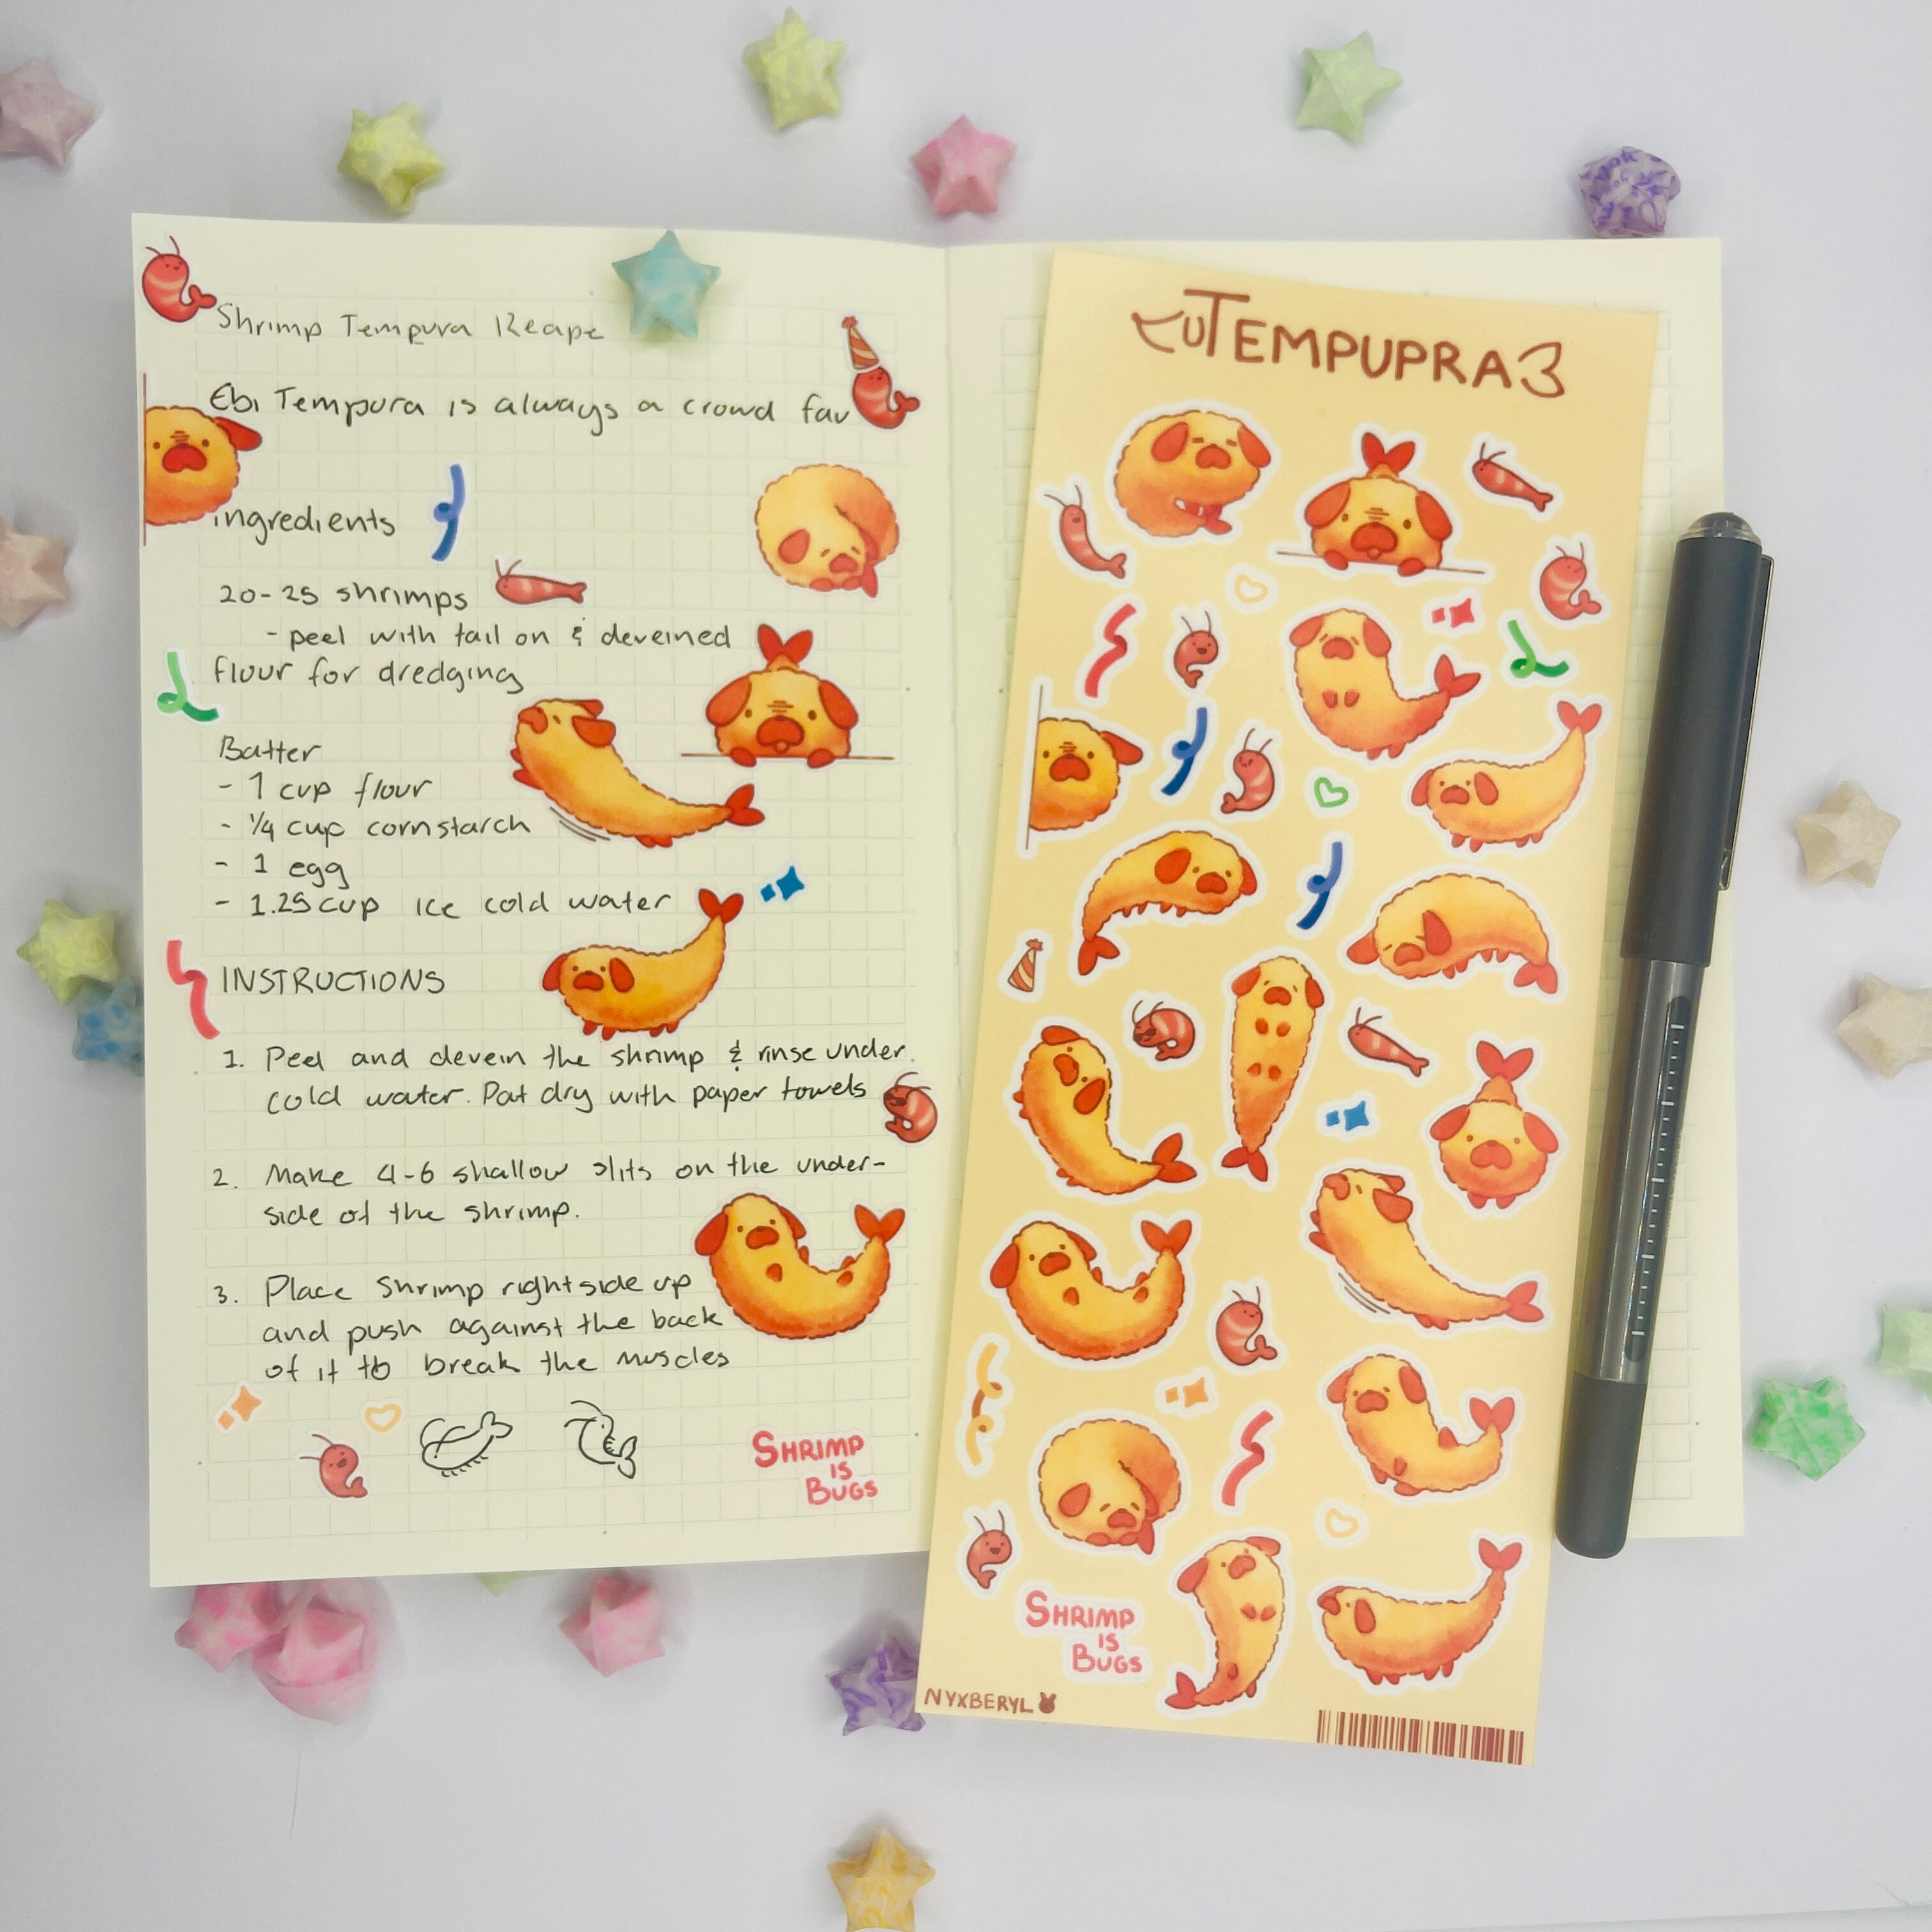 Shrimp Tempura Recipe
Ebi Tempura is always a crowd fav
ingredients
20-25 shrimps
- peel with tail on & deveined
flour for dredging
Batter
- 1 cup flour
- 1/4 cup cornstarch
- 1 egg
- 1.25 cup ice cold water
INSTRUCTIONS
1. Peel and devein the shrimp & rinse under
cold water. Pat dry with paper towels
2. Make 4-6 shallow slits on the under-
side of the shrimp.
3. Place Shrimp right side up
and push against the back
of it to break the muscles
SHRIMP
IS
BUGS
TEMPUPRA
SHRIMP
IS
BUGS
NYXBERYL